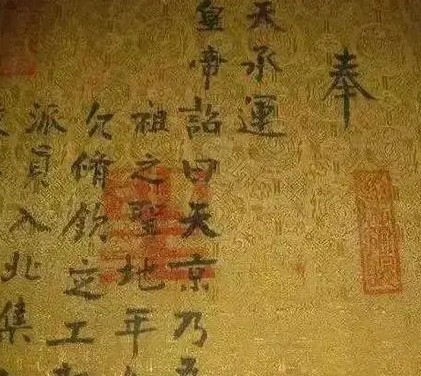 奉
天承運
皇帝詔曰天京乃
祖之聖地年
欠脩欽定工
派員入北集